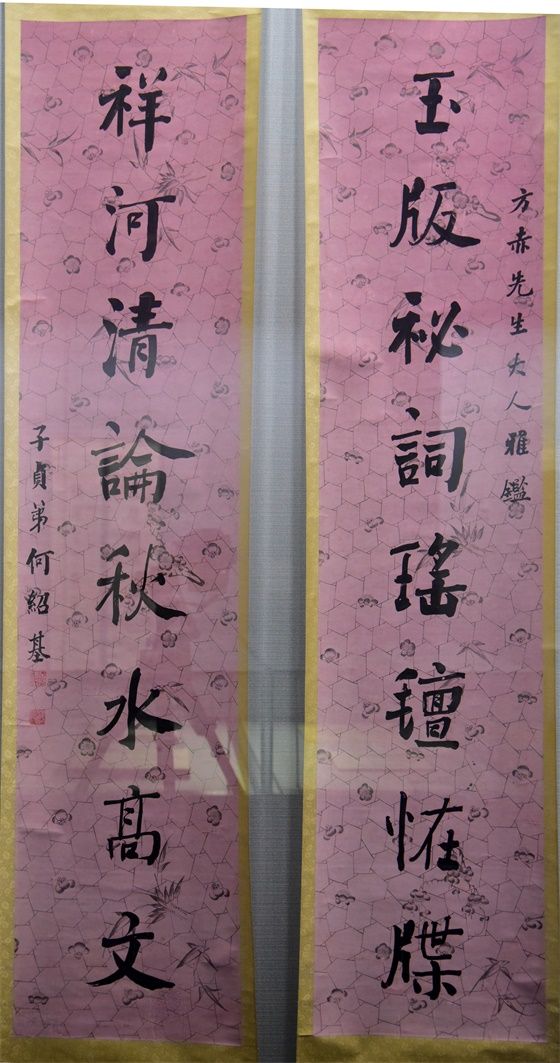 方赤先生大人雅鑑
玉版祕詞瑤壇恠牒
祥河清論秋水髙文
子貞弟何紹基